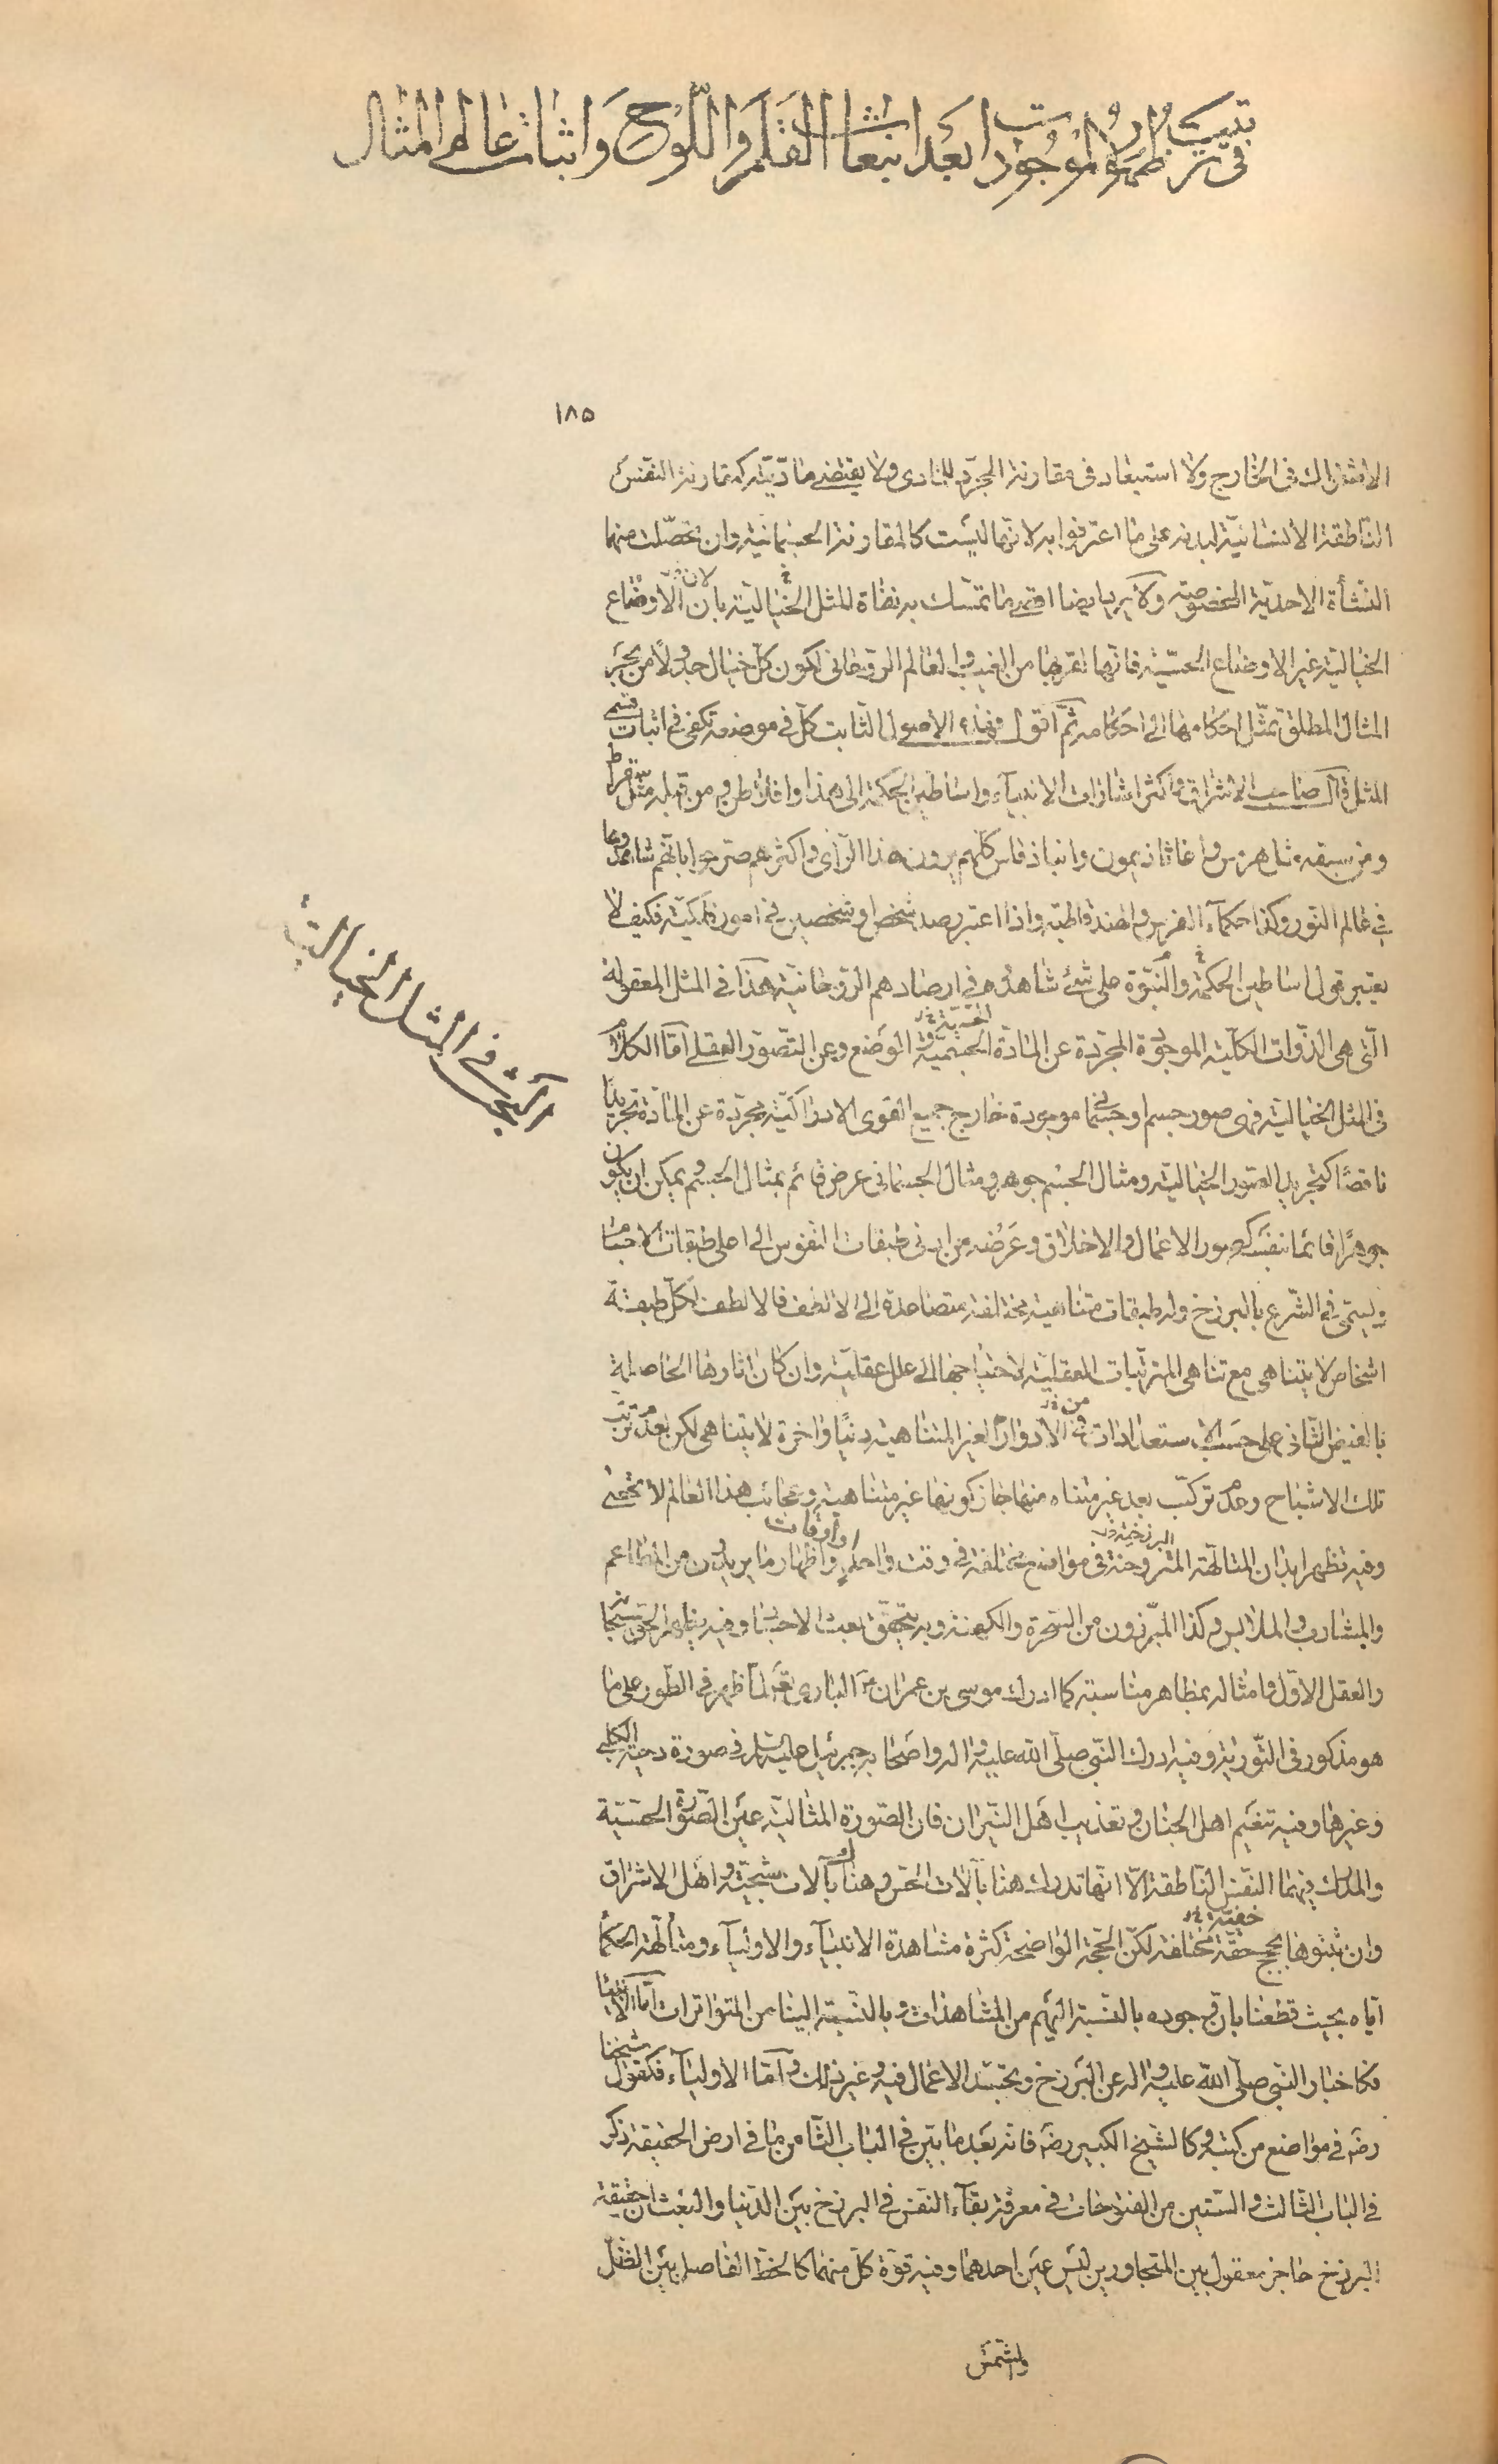 في ترتيب ظهور الموجودات بعد انبعاث القلم واللوح واثبات عالم المثال
١٨٥
الاشتراك فى الخارج ولا استبعاد فى مقارنة المجرّد للمادى ولا يقتضى ماديّته كمقارنة النفس
الناطقة الانسانيّة لبدنه على ما اعترفوا به لانّها ليست كالمقارنة الجسمانية وان تحصّلت منها
النشأة الاحديّة الشخصوصية ولا يريب ايضا اقوى ما تمسّك به نفاة المثل الخيالية بان لان الاوضاع
الخيالية غير الاوضاع الحسّية فانّها لقربها من الغيب والعالم الروحانى لكون كل خيال جدولاً من بحر
المثال المطلق تمثّل احكامها الى احكامه ثم اقول وهذه الاصول الثابت كلّ فى موضعه تكفى فى اثبات قسمى
المثل قال صاحب الاشراق واكثر اشارات الانبياء واساطين الحكمة الى هذا وافلاطون ومن قبله مثل سقراط
ومن سبقه مثل هرمس واغاثاذيمون وانباذقلس كلّهم يرون هذا الراى واكثرهم صرّحوا بانّهم شاهدوها
فى عالم النور وكذا حكماء الفرس والهند قاطبة واذا اعتبر رصد شخص او شخصين فى امور فلكيّة فكيف لا
يعتبر قول اساطين الحكمة والنبوّة على شئ شاهدوه فى ارصادهم الروحانيّة هذا فى المثل المعقولة
الّتى هى الذوات الكليّة الموجودة المجرّدة عن المادّة الجسمية والوضع وعن التصوّر العقلى امّا الكلام
فى المثل الخياليّة فهى صور جسم او جسمانى موجودة خارج جميع القوى الادراكيّة مجرّدة عن المادّة تجريدًا
ناقصًا كتجريد الصور الخياليّة ومثال الجسم جوهر ومثال الجسمانى عرض قائم بمثال الجسم ويمكن ان يكون
جوهرًا قائما بنفسه كصور الاعمال والاخلاق وعرضه من ادنى طبقات النفوس الى اعلى طبقات الاجسام
ويسمّى فى الشرع بالبرزخ وله طبقات متناهية مختلفة متصاعدة الى الالطف فالالطف لكل طبقة
اشخاص لا يتناهى مع تناهى المترتّبات العقليّة لاحتياجها الى علل عقليّة وان كان اثارها الحاصلة
بالفيض الثانى على حسب الاستعدادات فى الادوار الغير المتناهية دنيًا واخرة لا يتناهى لكن بعدم ترتّب
تلك الاشباح وعدم تركّب بعد غير متناه منها جاز كونها غير متناهية وعجائب هذا العالم لا تحصى
وفيه تظهر ابدان المتألّهة المتروحنة فى مواضع مختلفة فى وقت واحد او اوقات واظهار ما يريدون من المطاعم
والمشارب والملابس وكذا المبرّزون من السحرة والكهنة وبه يتحقّق بعث الاجساد وفيه يظهر الحق سبحانه
والعقل الاوّل وامثاله بمظاهر مناسبة كما ادرك موسى بن عمران البارى تعالى لمّا ظهر فى الطور على ما
هو مذكور فى التّورية وفيه ادرك النبى صلى الله عليه وآله واصحابه جبرئيل عليه السلام فى صورة دحية الكلبى
وغيرها وفيه تنعيم اهل الجنان وتعذيب اهل النيران فان الصّورة المثاليّة عين الصورة الحسّيّة
والمدرك فيهما النفس الناطقة الّا انّها تدرك هنا بآلات الحس وهناك بآلات شبحيّة واهل الاشراق
وان ثبتوها بحجج حقّة خفيّة مختلفة لكنّ الحجّة الواضحة كثرة مشاهدة الانبياء والاولياء ومتألّهة الحكماء
ايّاه بحيث قطعنا بان وجوده بالنسبة اليهم من المشاهدات وبالنسبة الينا من المتواترات امّا الانبياء
فكاخبار النبى صلى الله عليه وآله عن البرزخ وتجسّد الاعمال فيه وغير ذلك وامّا الاولياء فكقول شيخنا
رضه فى مواضع من كتبه وكالشيخ الكبير رضه فانه بعد ما بيّن فى الباب الثامن ما فى ارض الحقيقة ذكر
فى الباب الثالث والستين من الفتوحات فى معرفة بقاء النفس فى البرزخ بين الدنيا والبعث ان حقيقة
البرزخ حاجز معقول بين المتجاورين ليس عين احدهما وفيه قوة كلّ منهما كالخط الفاصل بين الظلّ
والشمس
البحث فى المثل الخيالية